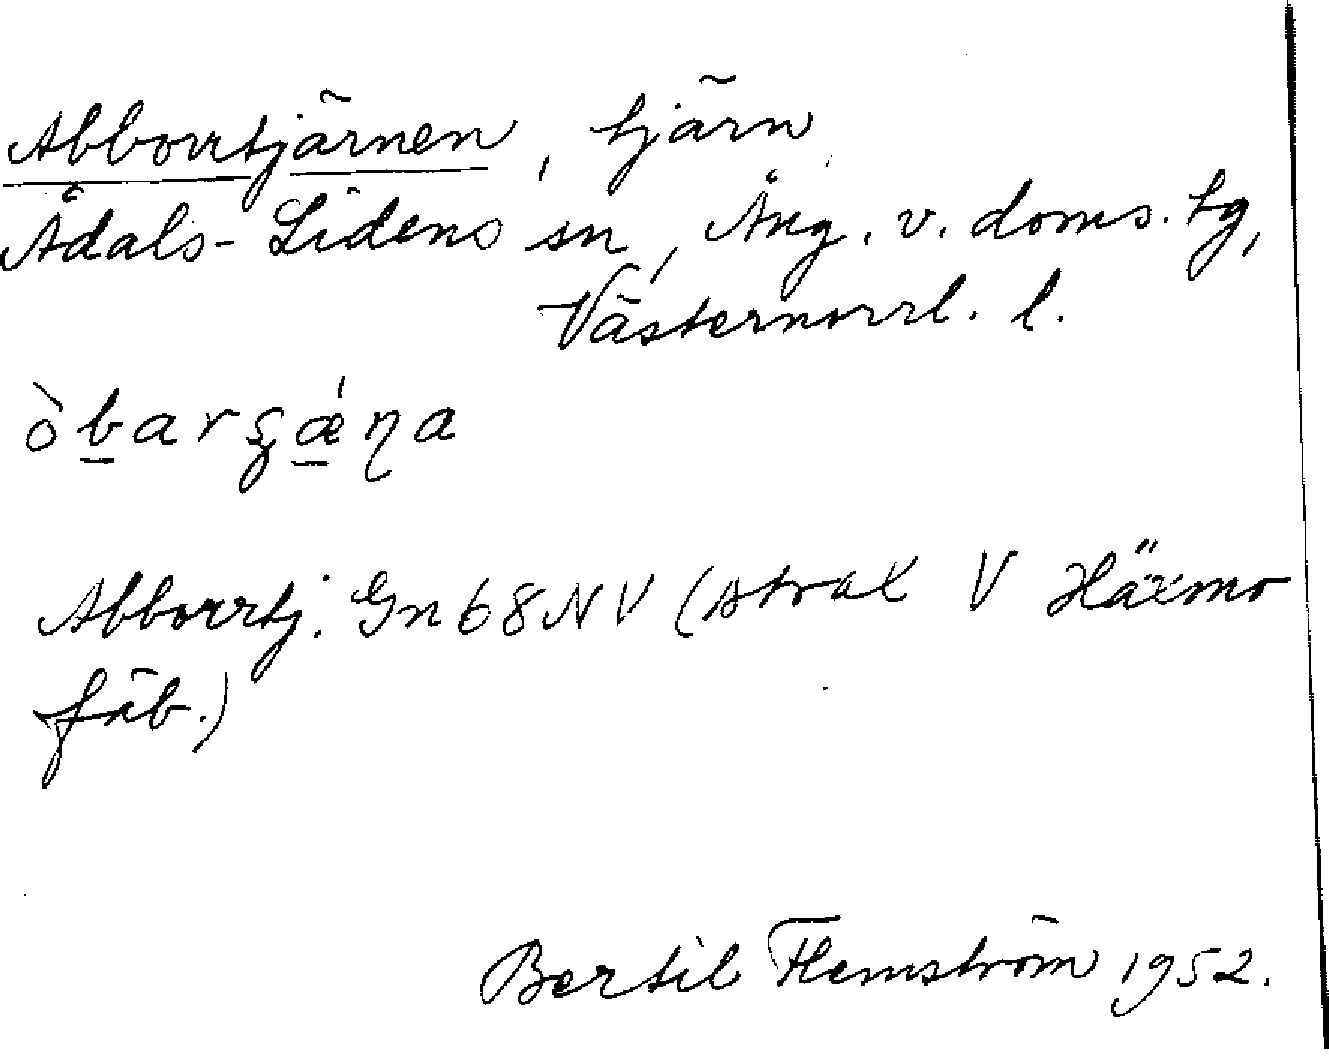 Abborrtjärnen, tjärn
Ådals-Lidens sn, Ång. v. doms. tg,
Västernorrl. l.
òbarʂǽɳa
Abborrtj. Gn 68 NV (strax V Häxmo
fäb.)
Bertil Flemström 1952.